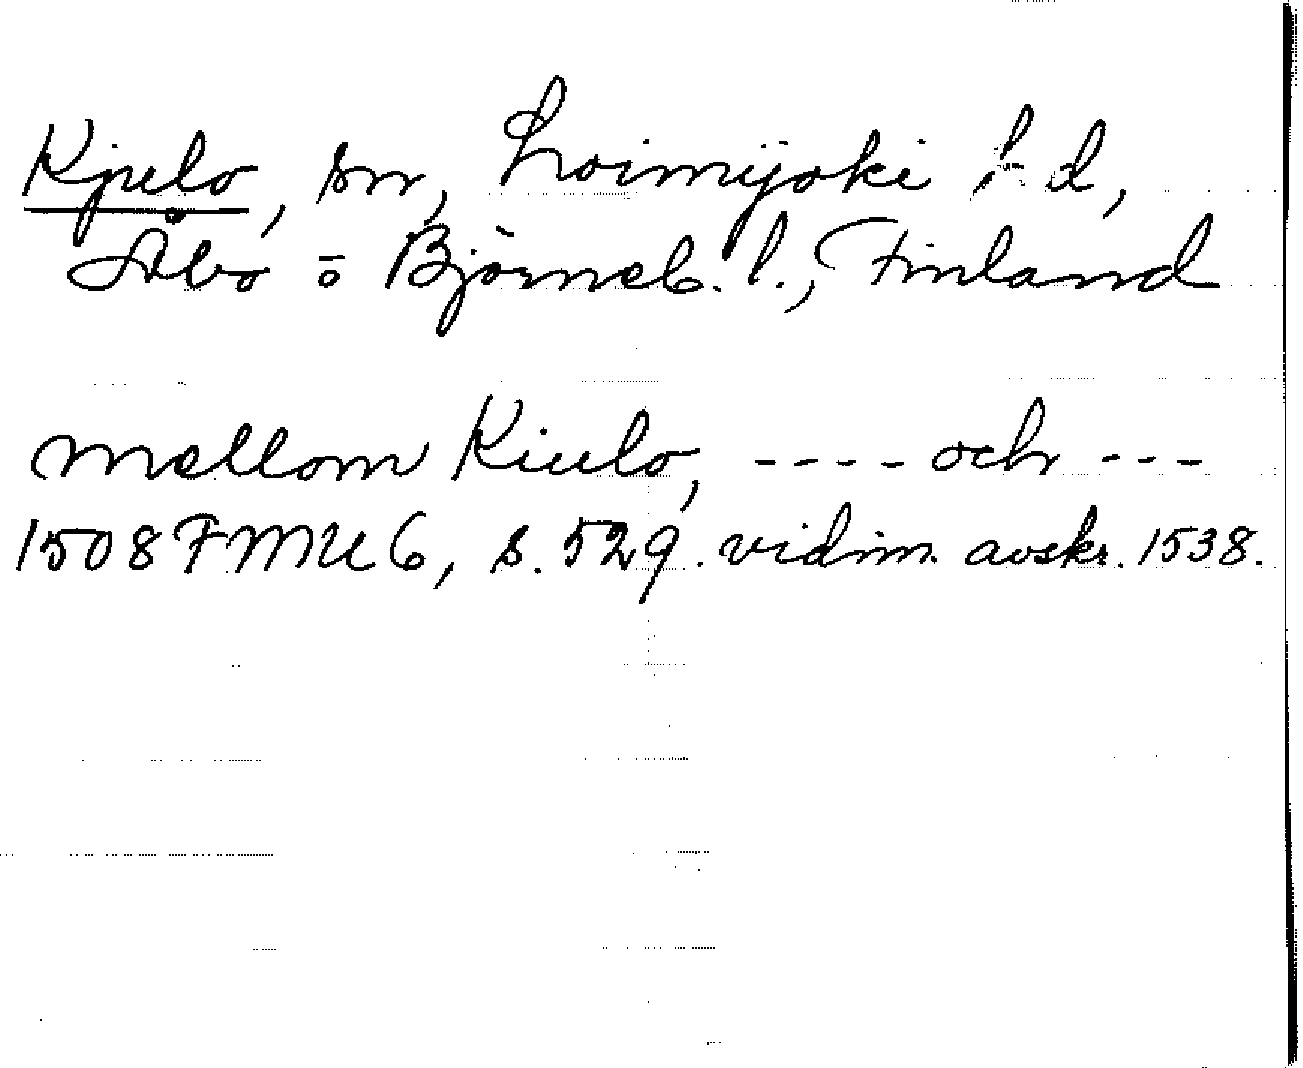 Kjulo, sn, Loimijoki t d,
Åbo o Björneb. l., Finland
mellom Kiulo, ---- och ---
1508 FMU 6, s. 529. vidim. avskr. 1538.